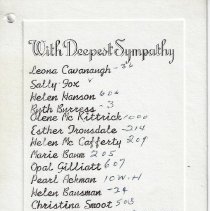 With Deepest Sympathy
Leona Cavanaugh - 36
Sally Fox
Helen Hanson 606
Ruth Burress - 3
Olene Mc Kittrick 1000
Esther Trousdale - 214
Helen Mc Cafferty 209
Marie Baum 205
Opal Gilliatt 607
Pearl Ackman 10 W-H
Helen Bausman - 24
Christina Smoot 503